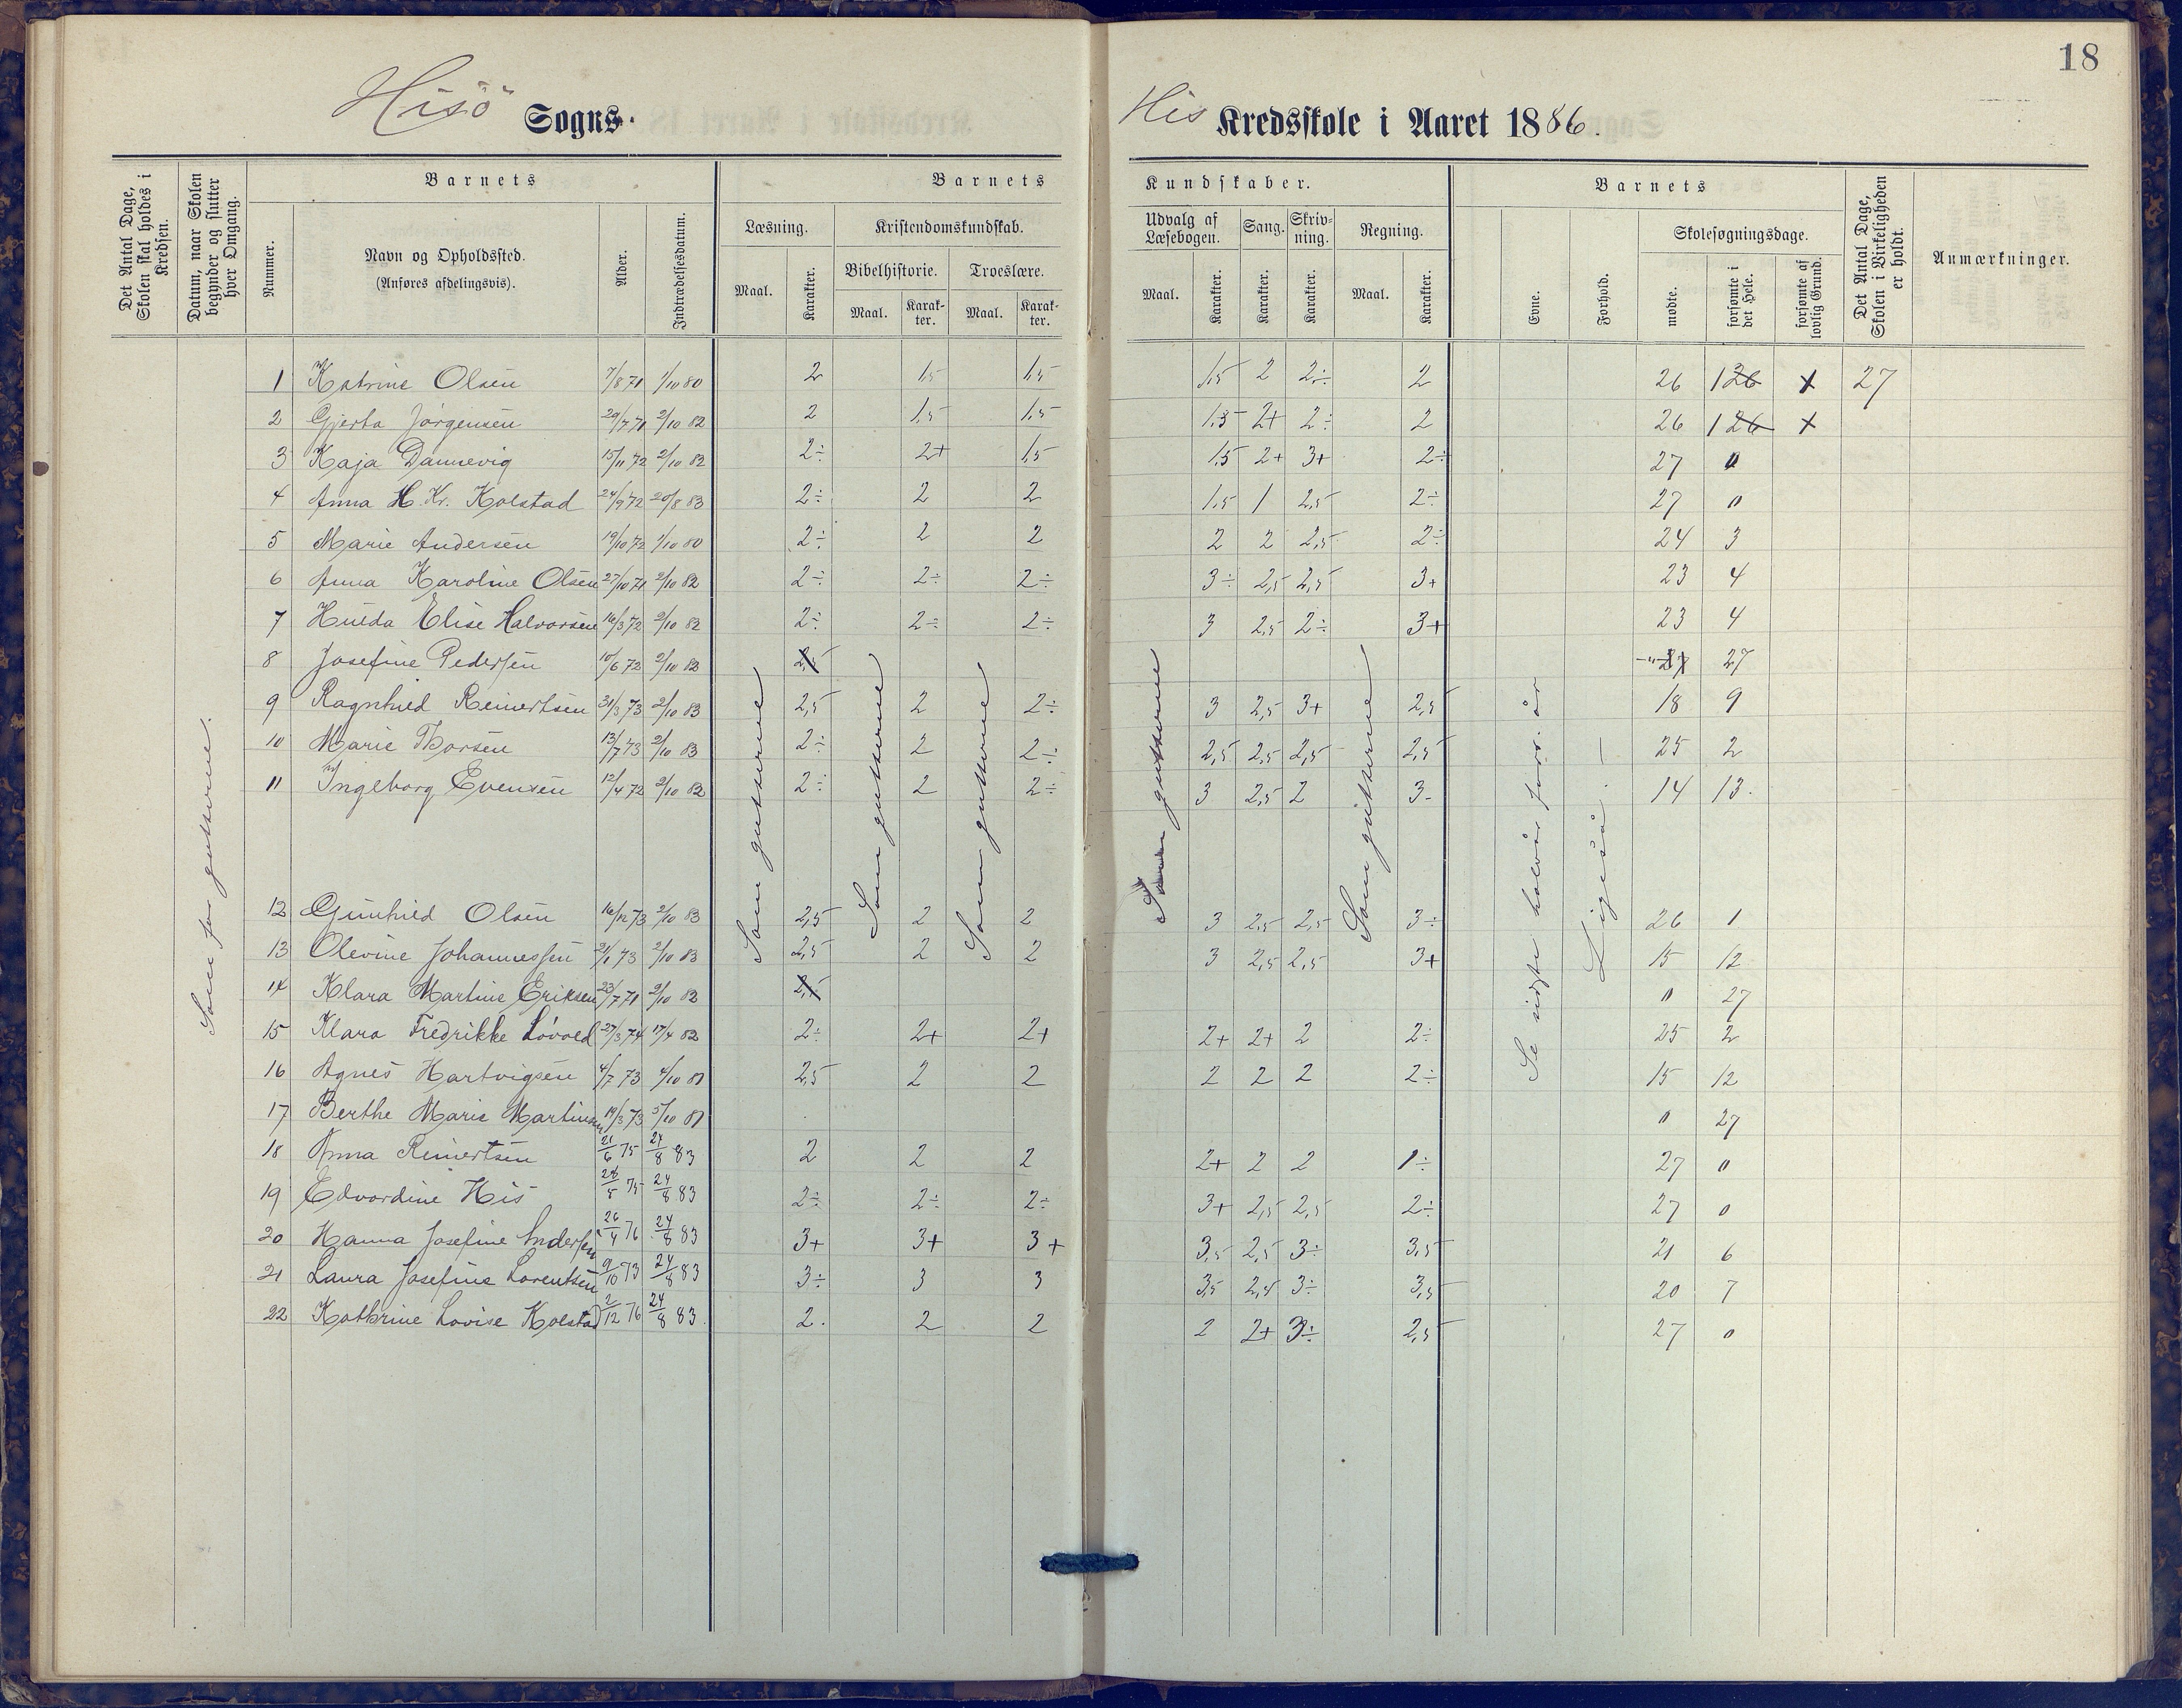 18
Hisö Sogns- His Kredsskole i Aaret 1886.
Det Antal Dage, Skolen skal holdes i Kredsen.
Datum, naar Skolen begynder og slutter hver Omgang.
Barnets
Nummer.
Navn og Opholdssted.
(Anføres afdelingsvis).
Alder.
Indtrædelsesdatum.
Barnets Kundskaber.
Læsning.
Maal. Karakter.
Kristendomskundskab.
Bibelhistorie. Troeslære.
Maal. Karakter. Maal. Karakter.
Udvalg af Læsebogen.
Maal. Karakter.
Sang.
Karakter.
Skrivning.
Karakter.
Regning.
Maal. Karakter.
Barnets
Evne.
Forhold.
Skolesøgningsdage.
mødte.
forsømte i det Hele.
forsømte af lovlig Grund.
Det Antal Dage, Skolen i Virkeligheden er holdt.
Anmærkninger.
Som for gutterne.
Som gutterne
Som gutterne
Som gutterne
Som gutterne
Som gutterne
Se sidste halvår forr. år
Ligeså. —
1 Katrine Olsen 7/8 71 1/10 80 2 1,5 1,5 1,5 2 2÷ 2 26 126 x 27
2 Gjerta Jörgensen 29/7 71 2/10 82 2 1,5 1,5 1,5 2+ 2÷ 2 26 126 x
3 Kaja Dannevig 15/11 72 2/10 82 2÷ 2+ 1,5 1,5 2+ 3+ 2÷ 27 0
4 Anna H. Kr. Kolstad 24/9 72 20/8 83 2÷ 2 2 1,5 1 2,5 2÷ 27 0
5 Marie Andersen 19/10 72 1/10 80 2÷ 2 2 2 2 2,5 2÷ 24 3
6 Anna Karoline Olsen 27/10 71 2/10 82 2÷ 2÷ 2÷ 3÷ 2,5 2,5 3+ 23 4
7 Hulda Elise Halvorsen 16/3 72 2/10 82 2÷ 2÷ 2÷ 3 2,5 2÷ 3+ 23 4
8 Josefine Pedersen 10/6 72 2/10 82 2,5 -"- 27 27
9 Ragnhild Reinertsen 31/3 73 2/10 83 2,5 2 2÷ 3 2,5 3+ 2,5 18 9
10 Marie Thorsen 13/7 73 2/10 83 2÷ 2 2÷ 2,5 2,5 2,5 2,5 25 2
11 Ingeborg Evensen 12/4 72 2/10 82 2÷ 2 2÷ 3 2,5 2 3- 14 13.
12 Gunhild Olsen 16/12 73 2/10 83 2,5 2 2 3 2,5 2,5 3÷ 26 1
13 Olevine Johannessen 21/1 73 2/10 83 2,5 2 2 3 2,5 2,5 3+ 15 12
14 Klara Martine Eriksen 23/7 71 2/10 82 2,5 0 27
15 Klara Fredrikke Lövold 27/3 74 17/4 82 2÷ 2+ 2+ 2+ 2+ 2 2÷ 25 2
16 Agnes Hartvigsen 4/7 73 4/10 81 2,5 2 2 2 2 2 2÷ 15 12
17 Berthe Marie Martinsen 19/3 73 5/10 81 0 27
18 Anna Reinertsen 21/6 75 24/8 83 2 2 2 2+ 2 2 1÷ 27 0
19 Edvardine His 28/5 75 24/8 83 2÷ 2÷ 2÷ 3+ 2,5 2,5 2÷ 27 0
20 Hanna Josefine Andersen 26/4 76 24/8 83 3+ 3+ 3+ 3,5 2,5 3÷ 3,5 21 6
21 Laura Josefine Lorentsen 9/10 73 24/8 83 3÷ 3 3 3,5 2,5 3÷ 3,5 20 7
22 Kathrine Lovise Kolstad 2/12 76 24/8 83 2. 2 2 2 2+ 3÷ 2,5 27 0